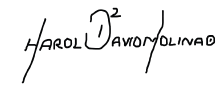 HAROLD² DAVIDMOLINAD